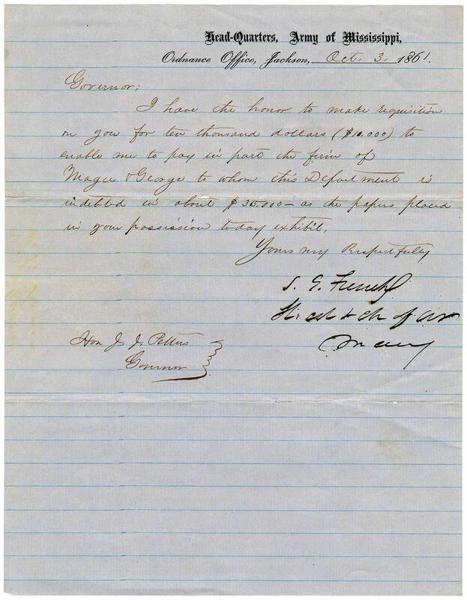 Head-Quarters, Army of Mississippi,
Ordnance Office, Jackson, Oct. 3. 1861.
Governor:
I have the honor to make requisition
on you for ten thousand dollars ($10.000) to
enable me to pay in part the firm of
Magee & George to whom this Department is
indebted in about $30.000 - as the papers placed
in your possession today exhibit.
Yours very Respectfully
S. G. French
of
Hon J. J. Pettus
Governor